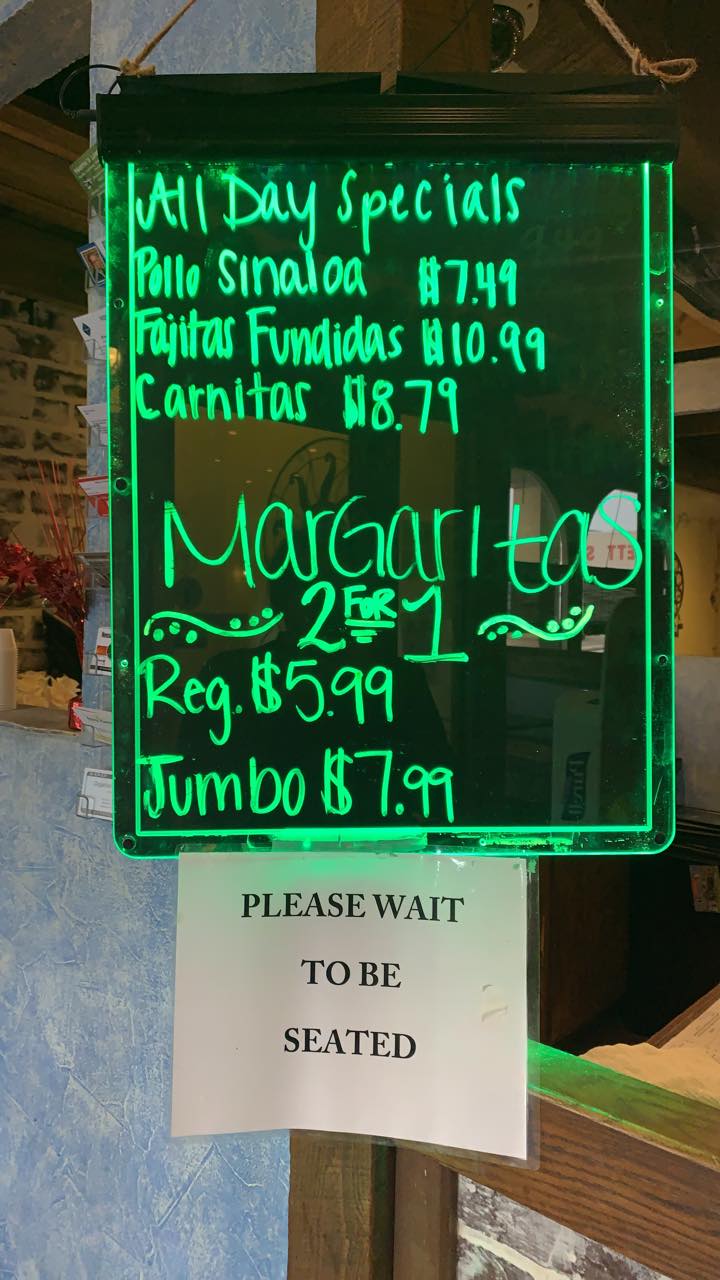 All Day Specials
Pollo Sinaloa $7.49
Fajitas Fundidas $10.99
Carnitas $8.79
MarGaritas
2 FOR 1
Reg. $5.99
Jumbo $7.99
PLEASE WAIT
TO BE
SEATED